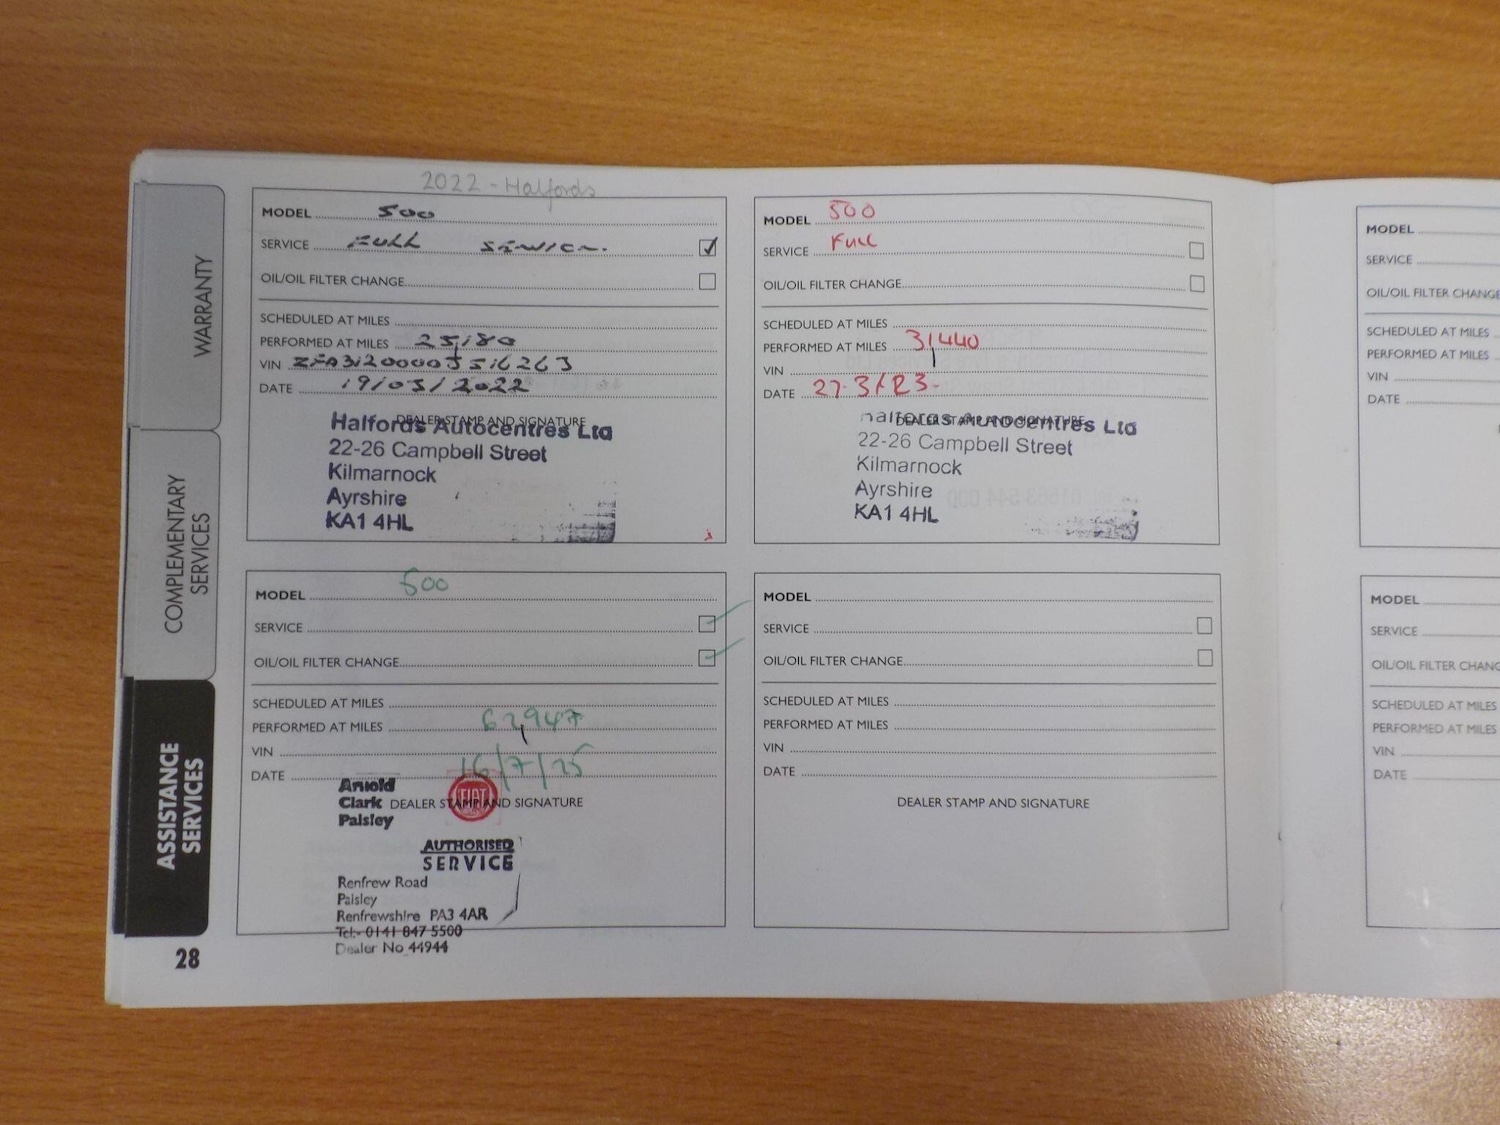 2022 - Halfords
MODEL 500
SERVICE FULL SERVICE.
OIL/OIL FILTER CHANGE
SCHEDULED AT MILES
PERFORMED AT MILES 25,180
VIN ZFA3120000J516263
DATE 19/03/2022
DEALER STAMP AND SIGNATURE
Halfords Autocentres Ltd
22-26 Campbell Street
Kilmarnock
Ayrshire
KA1 4HL
MODEL 500
SERVICE FULL
OIL/OIL FILTER CHANGE
SCHEDULED AT MILES
PERFORMED AT MILES 31,440
VIN
DATE 27.3/23-
DEALER STAMP AND SIGNATURE
Halfords Autocentres Ltd
22-26 Campbell Street
Kilmarnock
Ayrshire
KA1 4HL
MODEL 500
SERVICE
OIL/OIL FILTER CHANGE
SCHEDULED AT MILES
PERFORMED AT MILES 62,947
VIN
DATE 16/7/25
DEALER STAMP AND SIGNATURE
Arnold
Clark
Paisley
FIAT
AUTHORISED
SERVICE
Renfrew Road
Paisley
Renfrewshire PA3 4AR
Tel:- 0141 847 5500
Dealer No 44944
MODEL
SERVICE
OIL/OIL FILTER CHANGE
SCHEDULED AT MILES
PERFORMED AT MILES
VIN
DATE
DEALER STAMP AND SIGNATURE
MODEL
SERVICE
OIL/OIL FILTER CHANGE
SCHEDULED AT MILES
PERFORMED AT MILES
VIN
DATE
MODEL
SERVICE
OIL/OIL FILTER CHANG
SCHEDULED AT MILES
PERFORMED AT MILES
VIN
DATE
WARRANTY
COMPLEMENTARY
SERVICES
ASSISTANCE
SERVICES
28